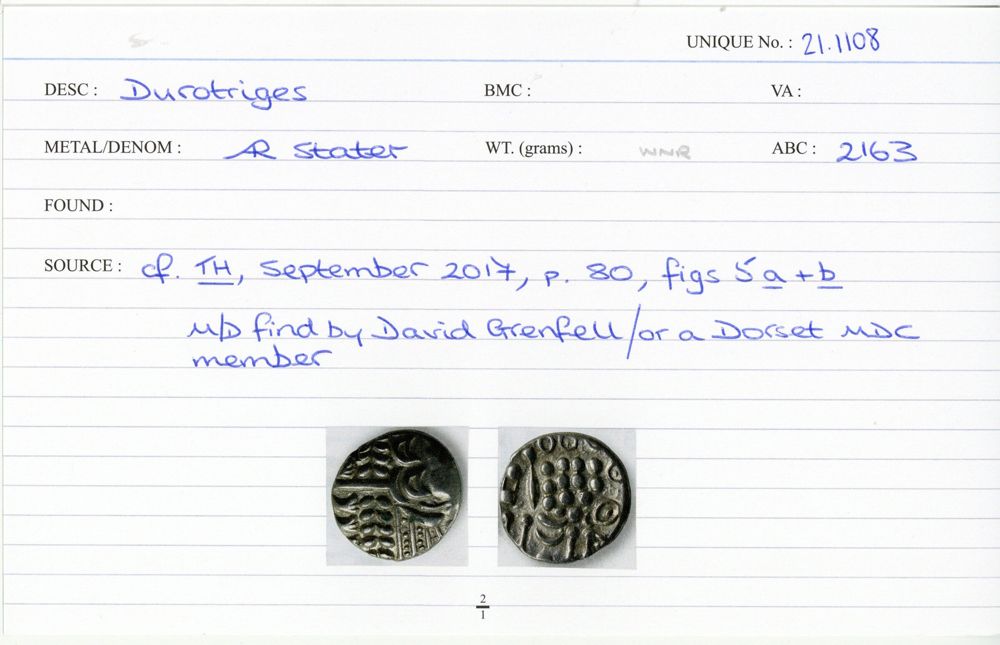 UNIQUE No. : 21.1108
DESC : Durotriges BMC : VA :
METAL/DENOM : AR Stater WT. (grams) : WNR ABC : 2163
FOUND :
SOURCE : cf. TH, September 2017, p. 80, figs 5a + b
M/D find by David Grenfell / or a Dorset MDC
member
2
1